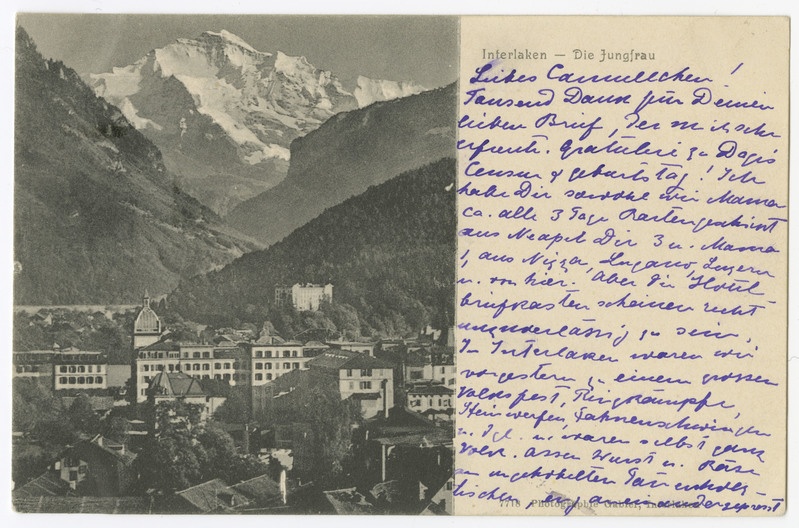 Interlaken — Die Jungfrau
Liebes Camillchen!
Tausend Dank für Deinen
lieben Brief, der mich sehr
erfreute. Gratuliere zu Dagis
Censur & Geburtstag! Ich
habe Dir sowohl wie Mama
ca. alle 3 Tage Karten geschickt
aus Neapel Dir 3 u. Mama
1, aus Nizza, Lugano, Luzern
u. von hier. Aber die Hotel-
briefkasten scheinen recht
unzuverlässig zu sein.
In Interlaken waren wir
vorgestern zu einem grossen
Volksfest, Ringkämpfe,
Steinwerfen, Fahnenschwingen
u. dgl. u. waren selbst ganz
Volk. Assen Wurst u. Käse
an ungehobelten Tannenholz-
tischen, eng aneinandergepresst
7718 Photographie Gabler, Interlaken